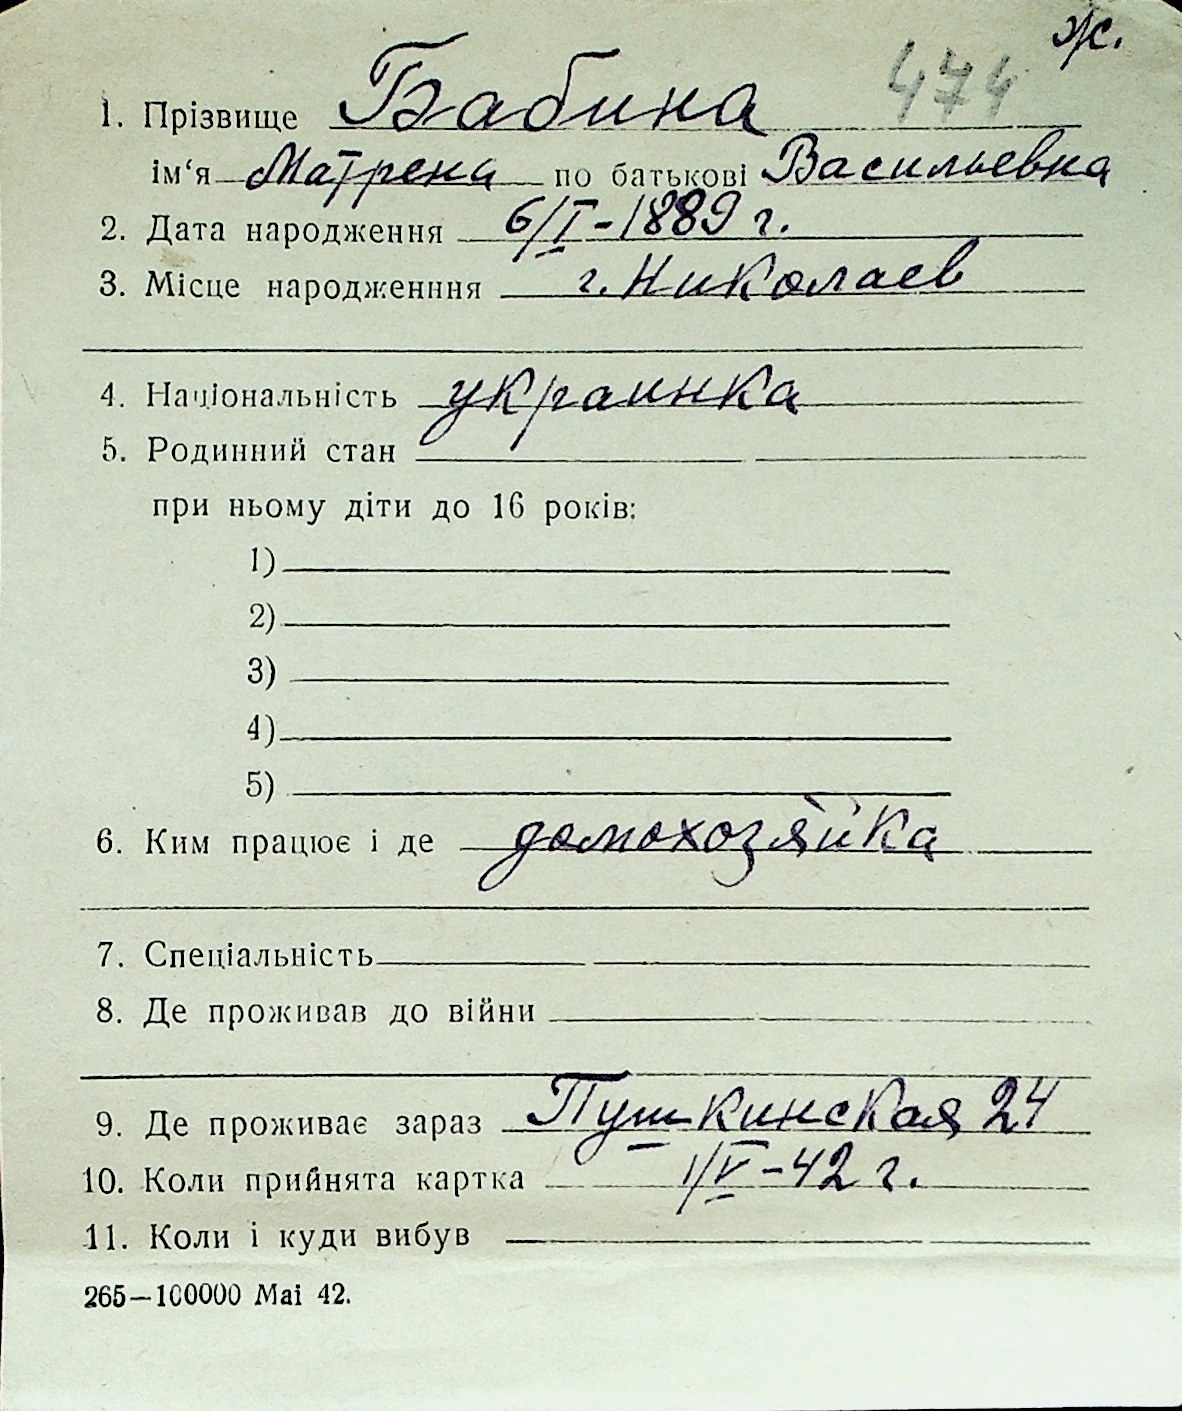 ж.
474
1. Прізвище Бабина
ім'я Матрена по батькові Васильевна
2. Дата народження 6/I-1889 г.
3. Місце народженння г. Николаев
4. Національність украинка
5. Родинний стан
при ньому діти до 16 років:
1)
2)
3)
4)
5)
6. Ким працює і де домохозяйка
7. Спеціальність
8. Де проживав до війни
9. Де проживає зараз Пушкинская 24
10. Коли прийнята картка 1/V-42 г.
11. Коли і куди вибув
265—100000 Маі 42.